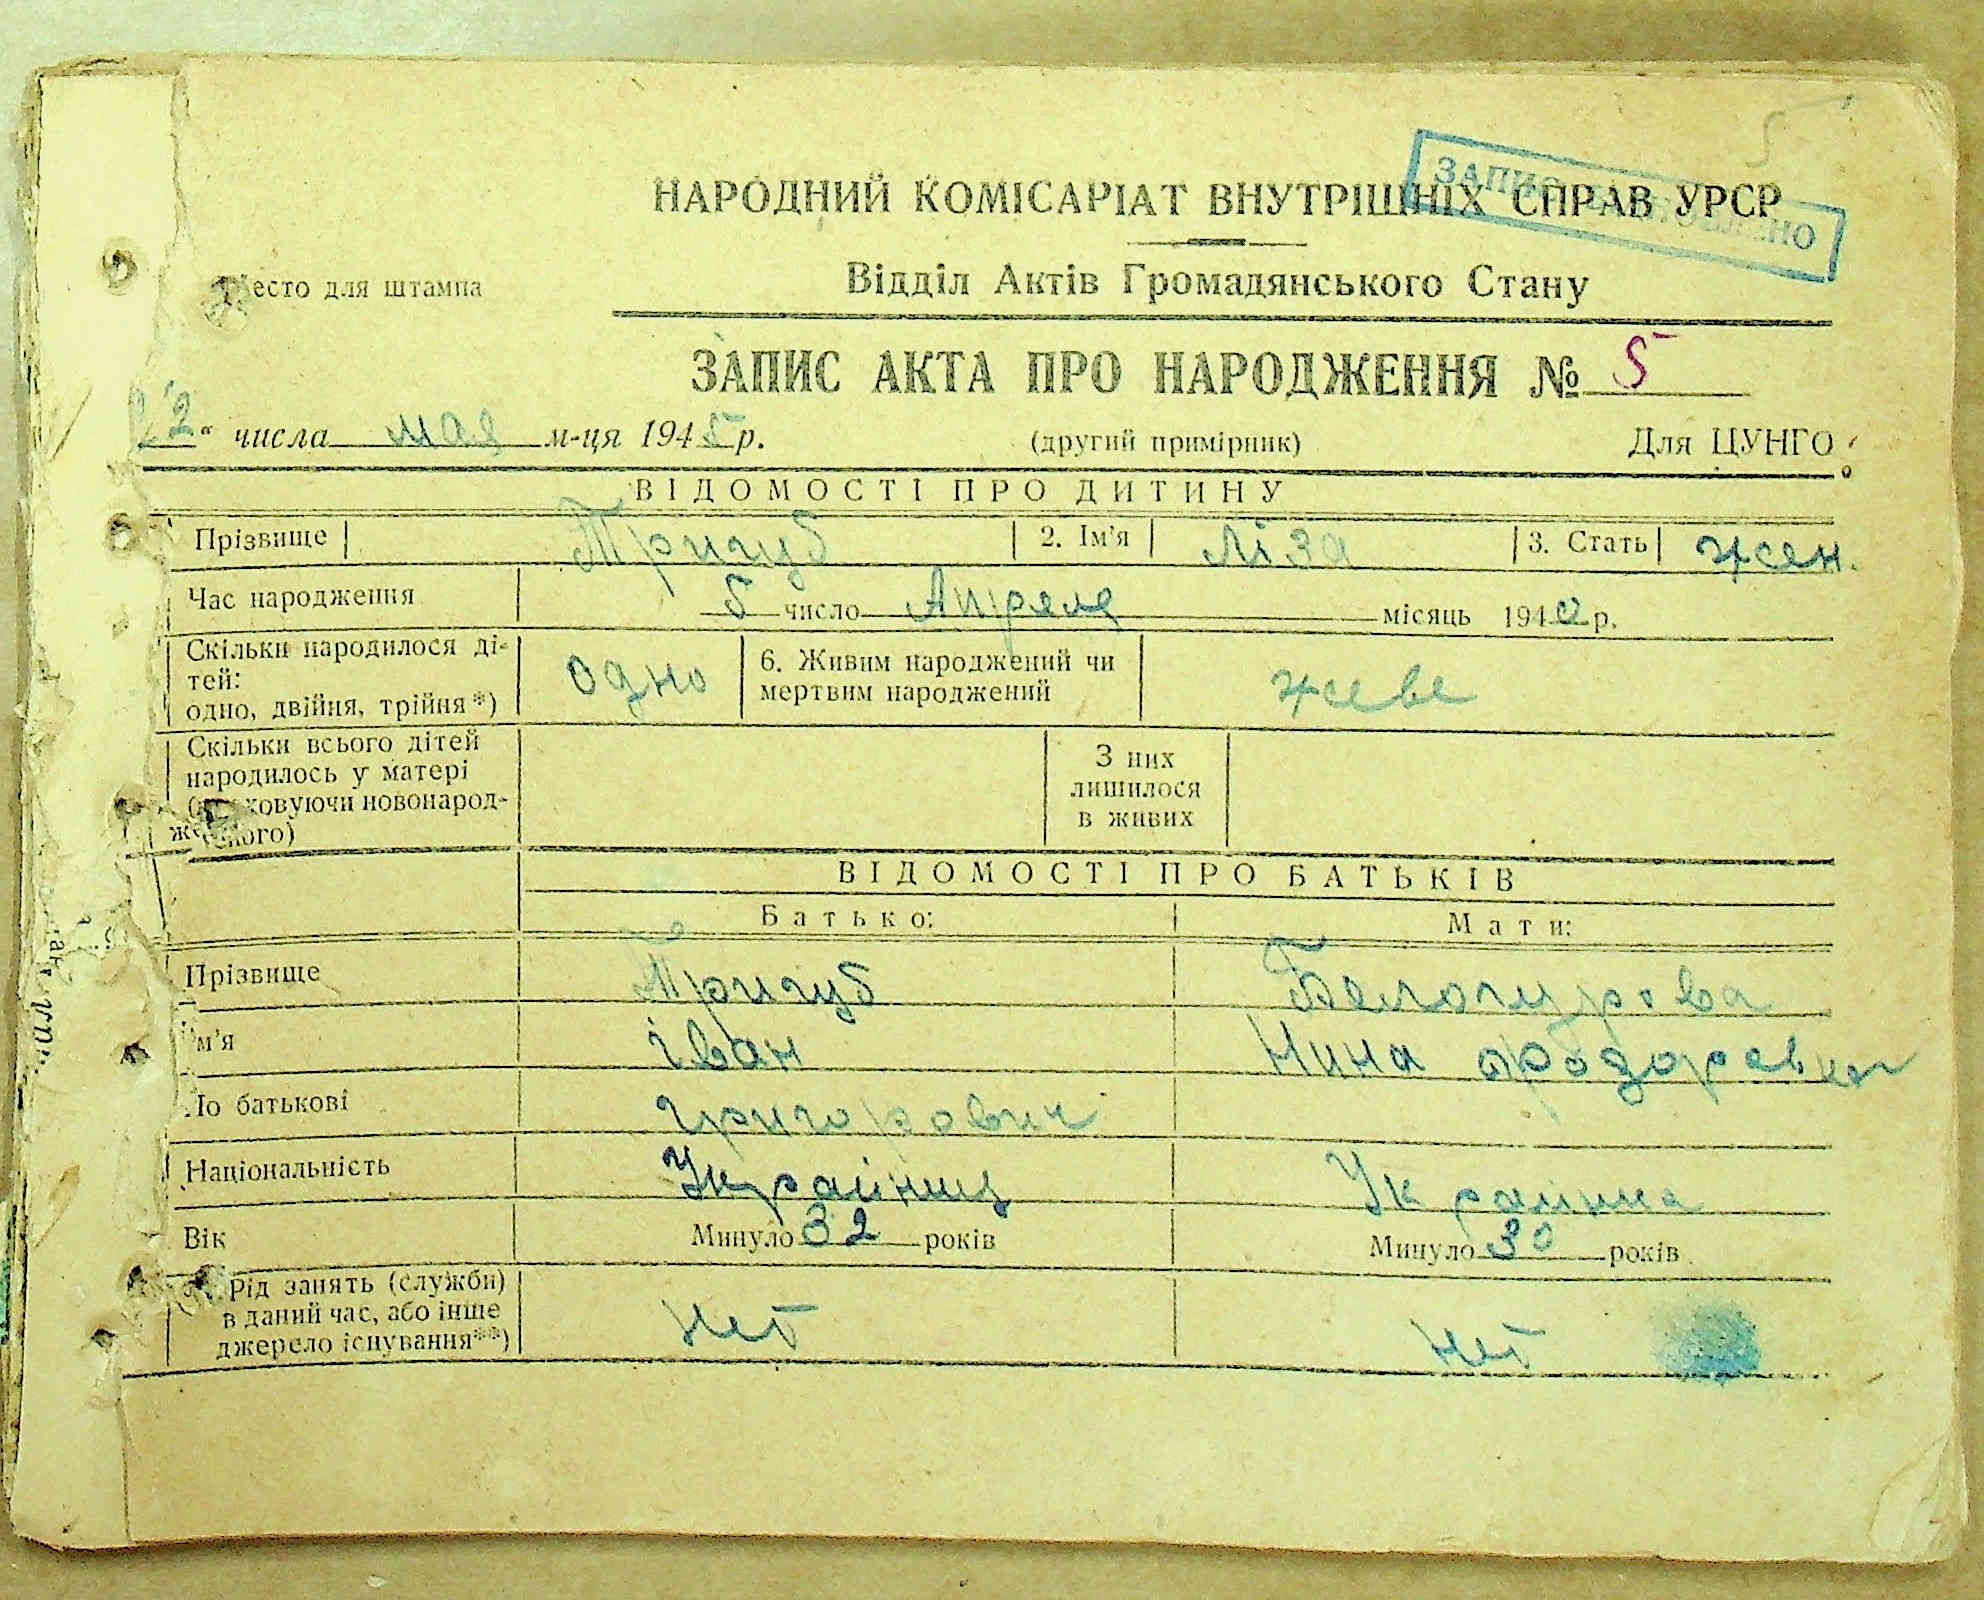 5
ЗАПИС ВІДНОВЛЕНО
НАРОДНИЙ КОМІСАРІАТ ВНУТРІШНІХ СПРАВ УРСР
Место для штампа
Відділ Актів Громадянського Стану
ЗАПИС АКТА ПРО НАРОДЖЕННЯ № 5
22" числа мая м-ця 1945 р. (другий примірник) Для ЦУНГО
ВІДОМОСТІ ПРО ДИТИНУ
Прізвище Тригуб 2. Ім'я Ліза 3. Стать жен.
Час народження 5 число Апреля місяць 1940 р.
Скільки народилося ді-
тей:
одно, двійня, трійня *) одно 6. Живим народжений чи
мертвим народжений живе
Скільки всього дітей
народилось у матері
(враховуючи новонарод-
женого)
З них
лишилося
в живих
ВІДОМОСТІ ПРО БАТЬКІВ
Батько: Мати:
Прізвище Тригуб Белогурова
м'я Іван Нина Фёдоровна
По батькові Григорович
Національність Українец Українка
Вік Минуло 32 років Минуло 30 років
Рід занять (служби)
в даний час, або інше
джерело існування**) Нет Нет